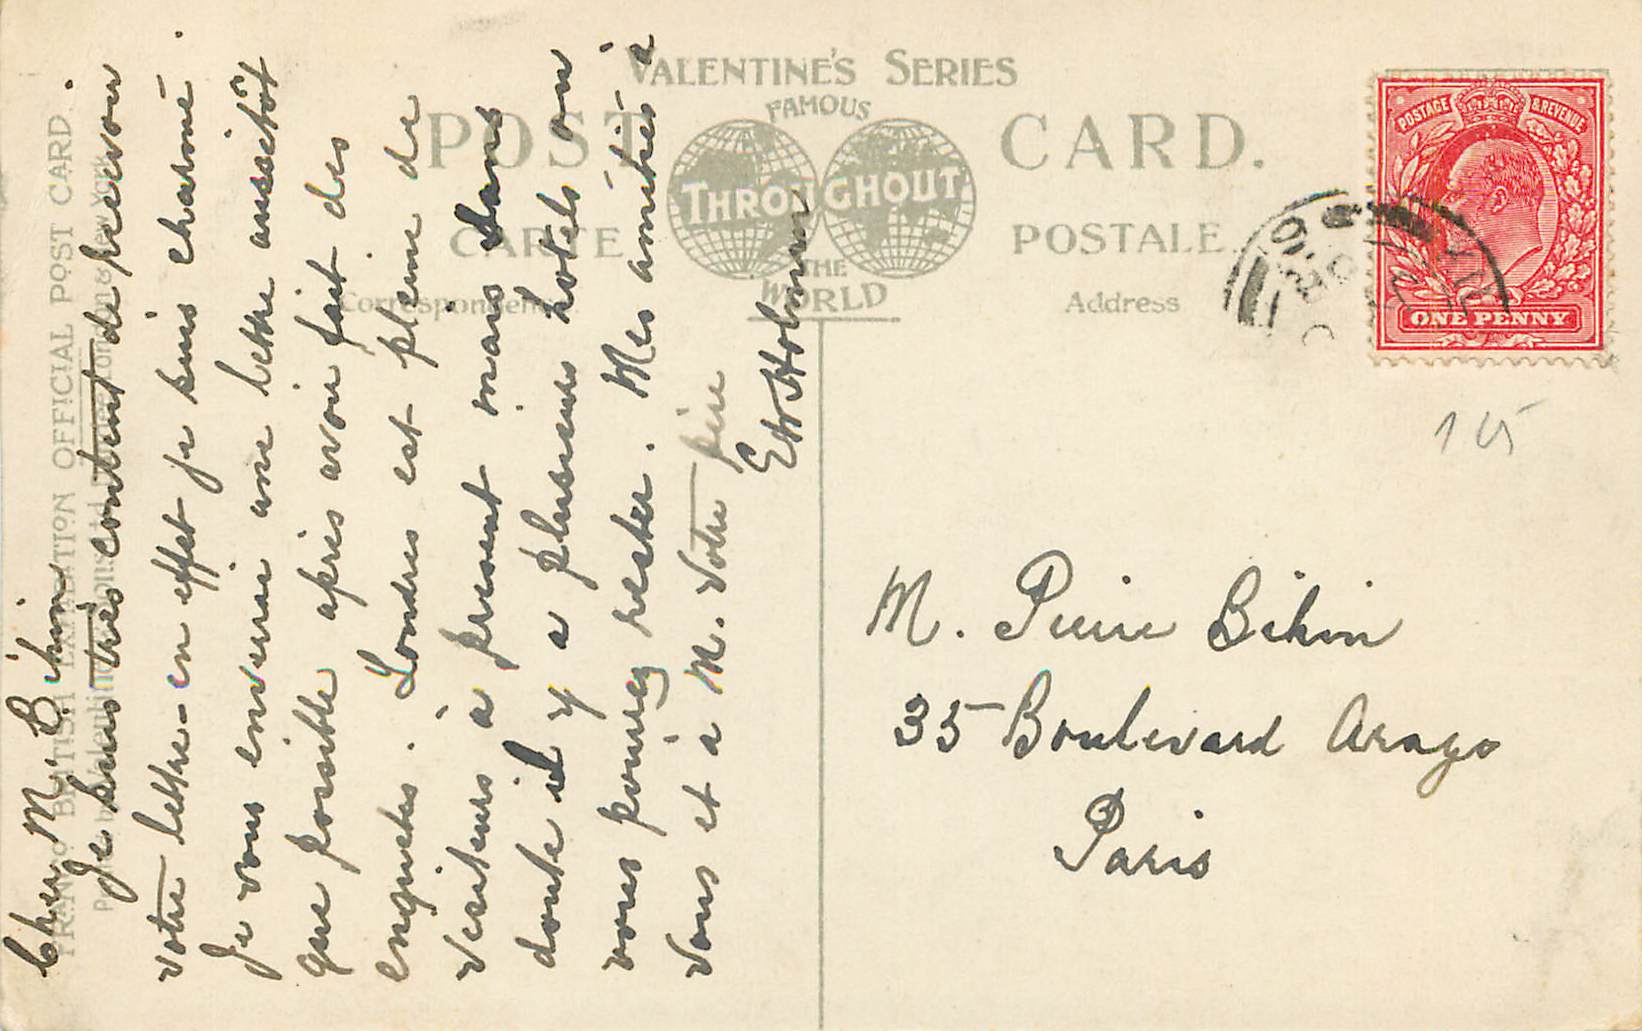 VALENTINE'S SERIES
FAMOUS
POST CARD.
THROUGHOUT
CARTE POSTALE
THE
WORLD
Correspondence.
Address
FRANCO BRITISH EXHIBITION OFFICIAL POST CARD.
Cher M. Bihin
Je suis très content de recevoir
votre lettre - en effet je suis charmé.
Je vous enverrai une lettre aussitôt
que possible après avoir fait des
enquêtes. Londres est pleine de
visiteurs à present mais sans
doute il y a plusieurs hotels où
vous pourrez rester. Mes amitiés à
vous et à M. votre père
POSTAGE & REVENUE
ONE PENNY
M. Pierre Bihin
35 Boulevard Arago
Paris